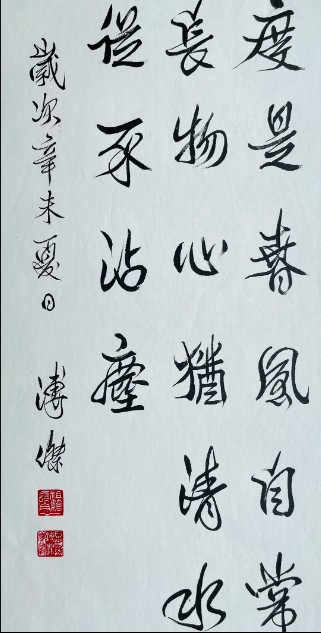 度是春風自常
長物心猶清水
從不沾塵
歲次辛未夏日 溥傑